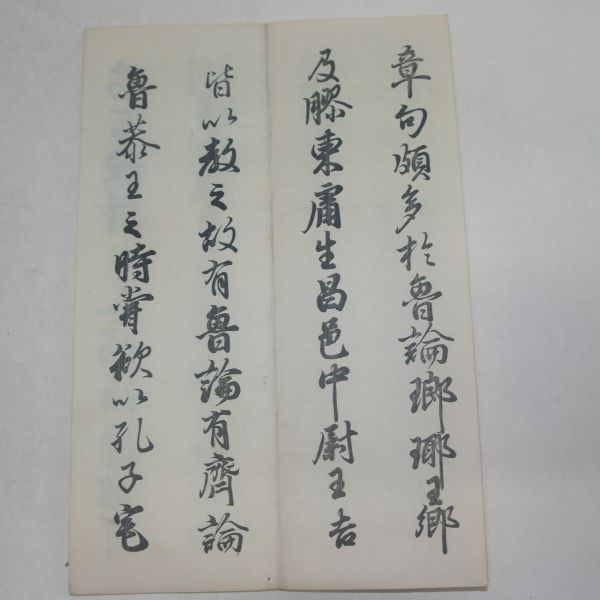 章句頗多於魯論瑯瑘王卿
及膠東庸生昌邑中尉王吉
皆以教之故有魯論有齊論
魯恭王之時嘗欲以孔子宅